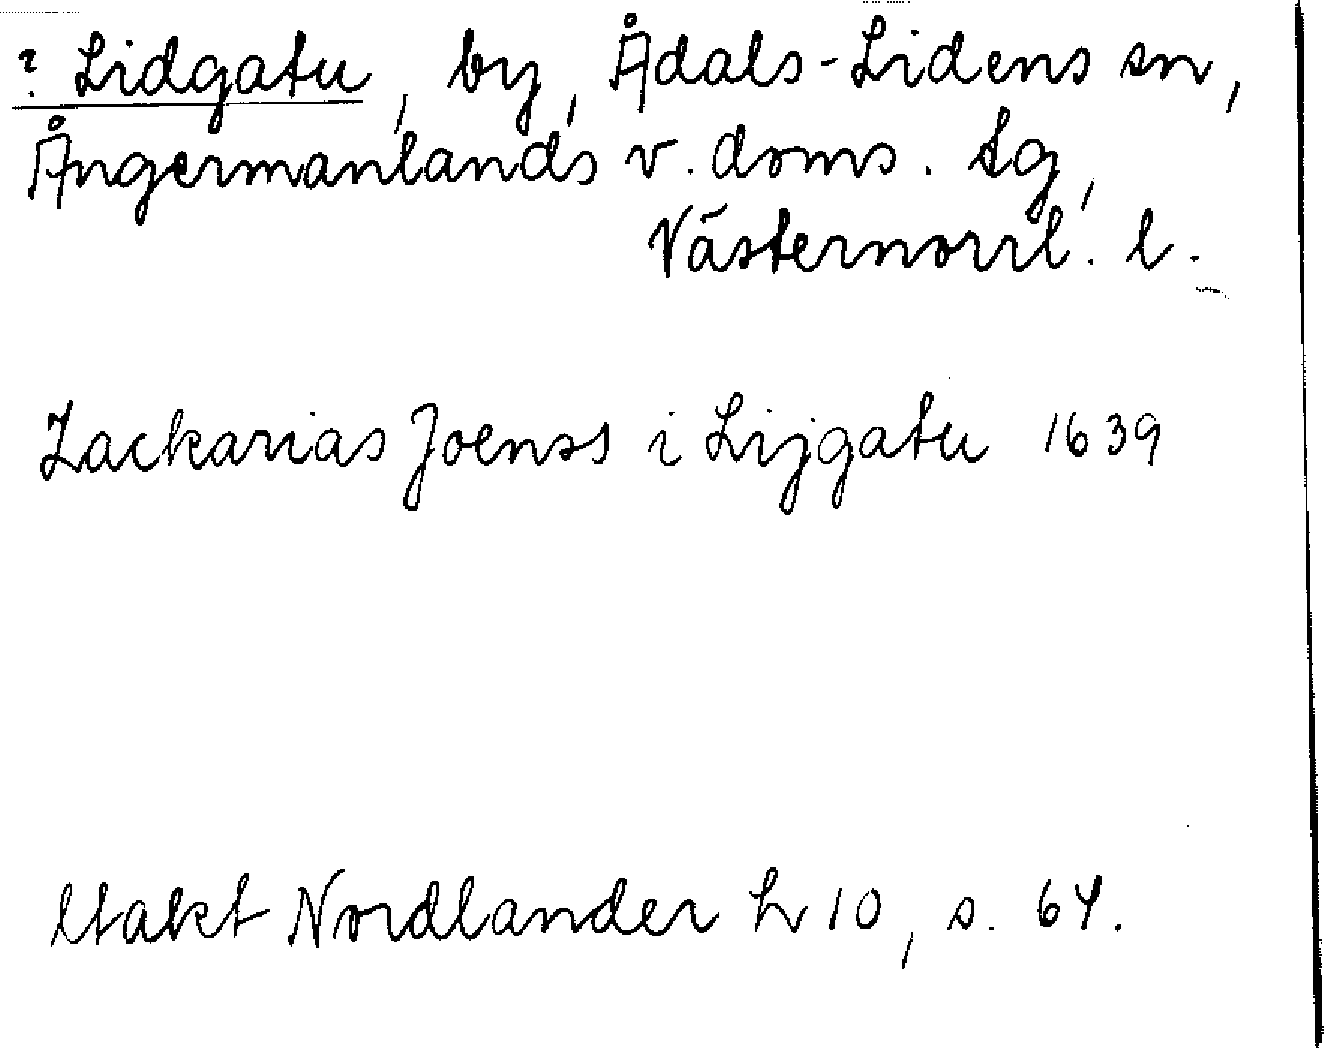 ? Lidgatu, by, Ådals-Lidens sn,
Ångermanlands v. doms. tg,
Västernorrl. l.
Zackarias Joenss i Lijgatu 1639
Utakt Nordlander h 10, s. 64.